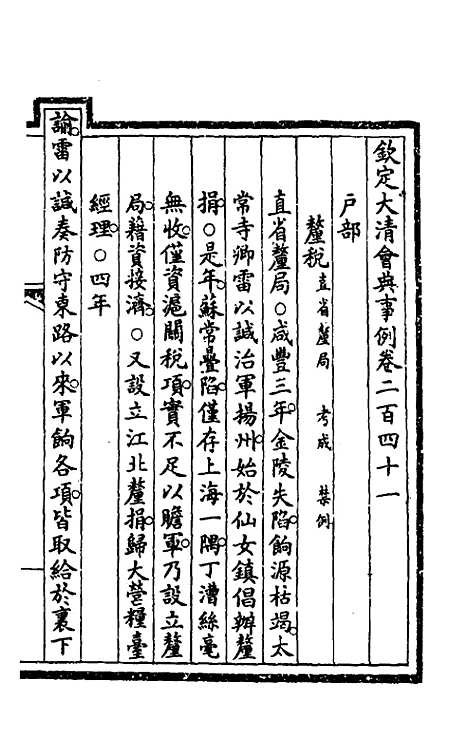 欽定大清會典事例卷二百四十一
戶部
釐稅 直省釐局 考成 禁例
直省釐局○咸豐三年。金陵失陷。餉源枯竭。太
常寺卿雷以諴治軍揚州。始於仙女鎮倡辦釐
捐。○是年。蘇常疊陷。僅存上海一隅。丁漕絲毫
無收。僅資滬關稅項。實不足以贍軍。乃設立釐
局。藉資接濟。○又設立江北釐捐。歸大營糧臺
經理。○四年
諭雷以諴奏防守東路以來。軍餉各項。皆取給於裏下